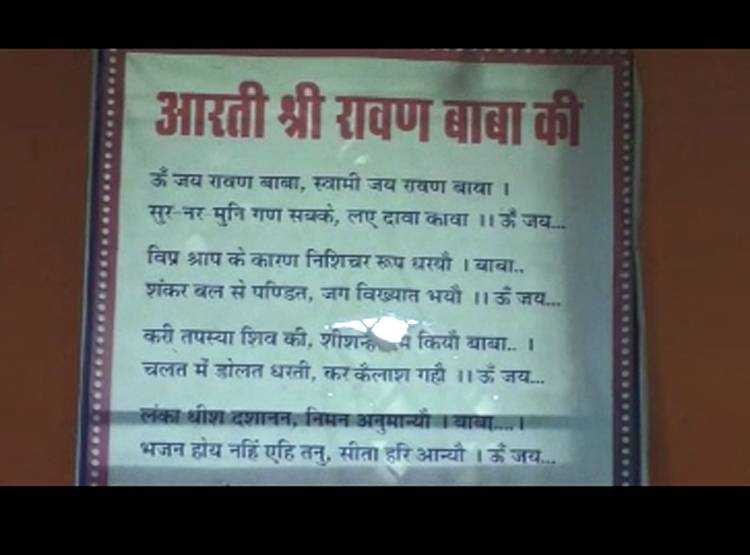 आरती श्री रावण बाबा की
ॐ जय रावण बाबा, स्वामी जय रावण बाबा ।
सुर-नर मुनि गण सबके, लए दावा कावा ।। ॐ जय...
विप्र श्राप के कारण निशिचर रूप धरयौ । बाबा..
शंकर बल से पण्डित, जग विख्यात भयौ ।। ॐ जय...
करी तपस्या शिव की, कियौ बाबा.. ।
चलत में डोलत धरती, कर कैलाश गहौ ।। ॐ जय...
लंका धीश दशानन, निमन अनुमान्यौ । बाबा....।
भजन होय नहिं एहि तनु, सीता हरि आन्यौ । ॐ जय...